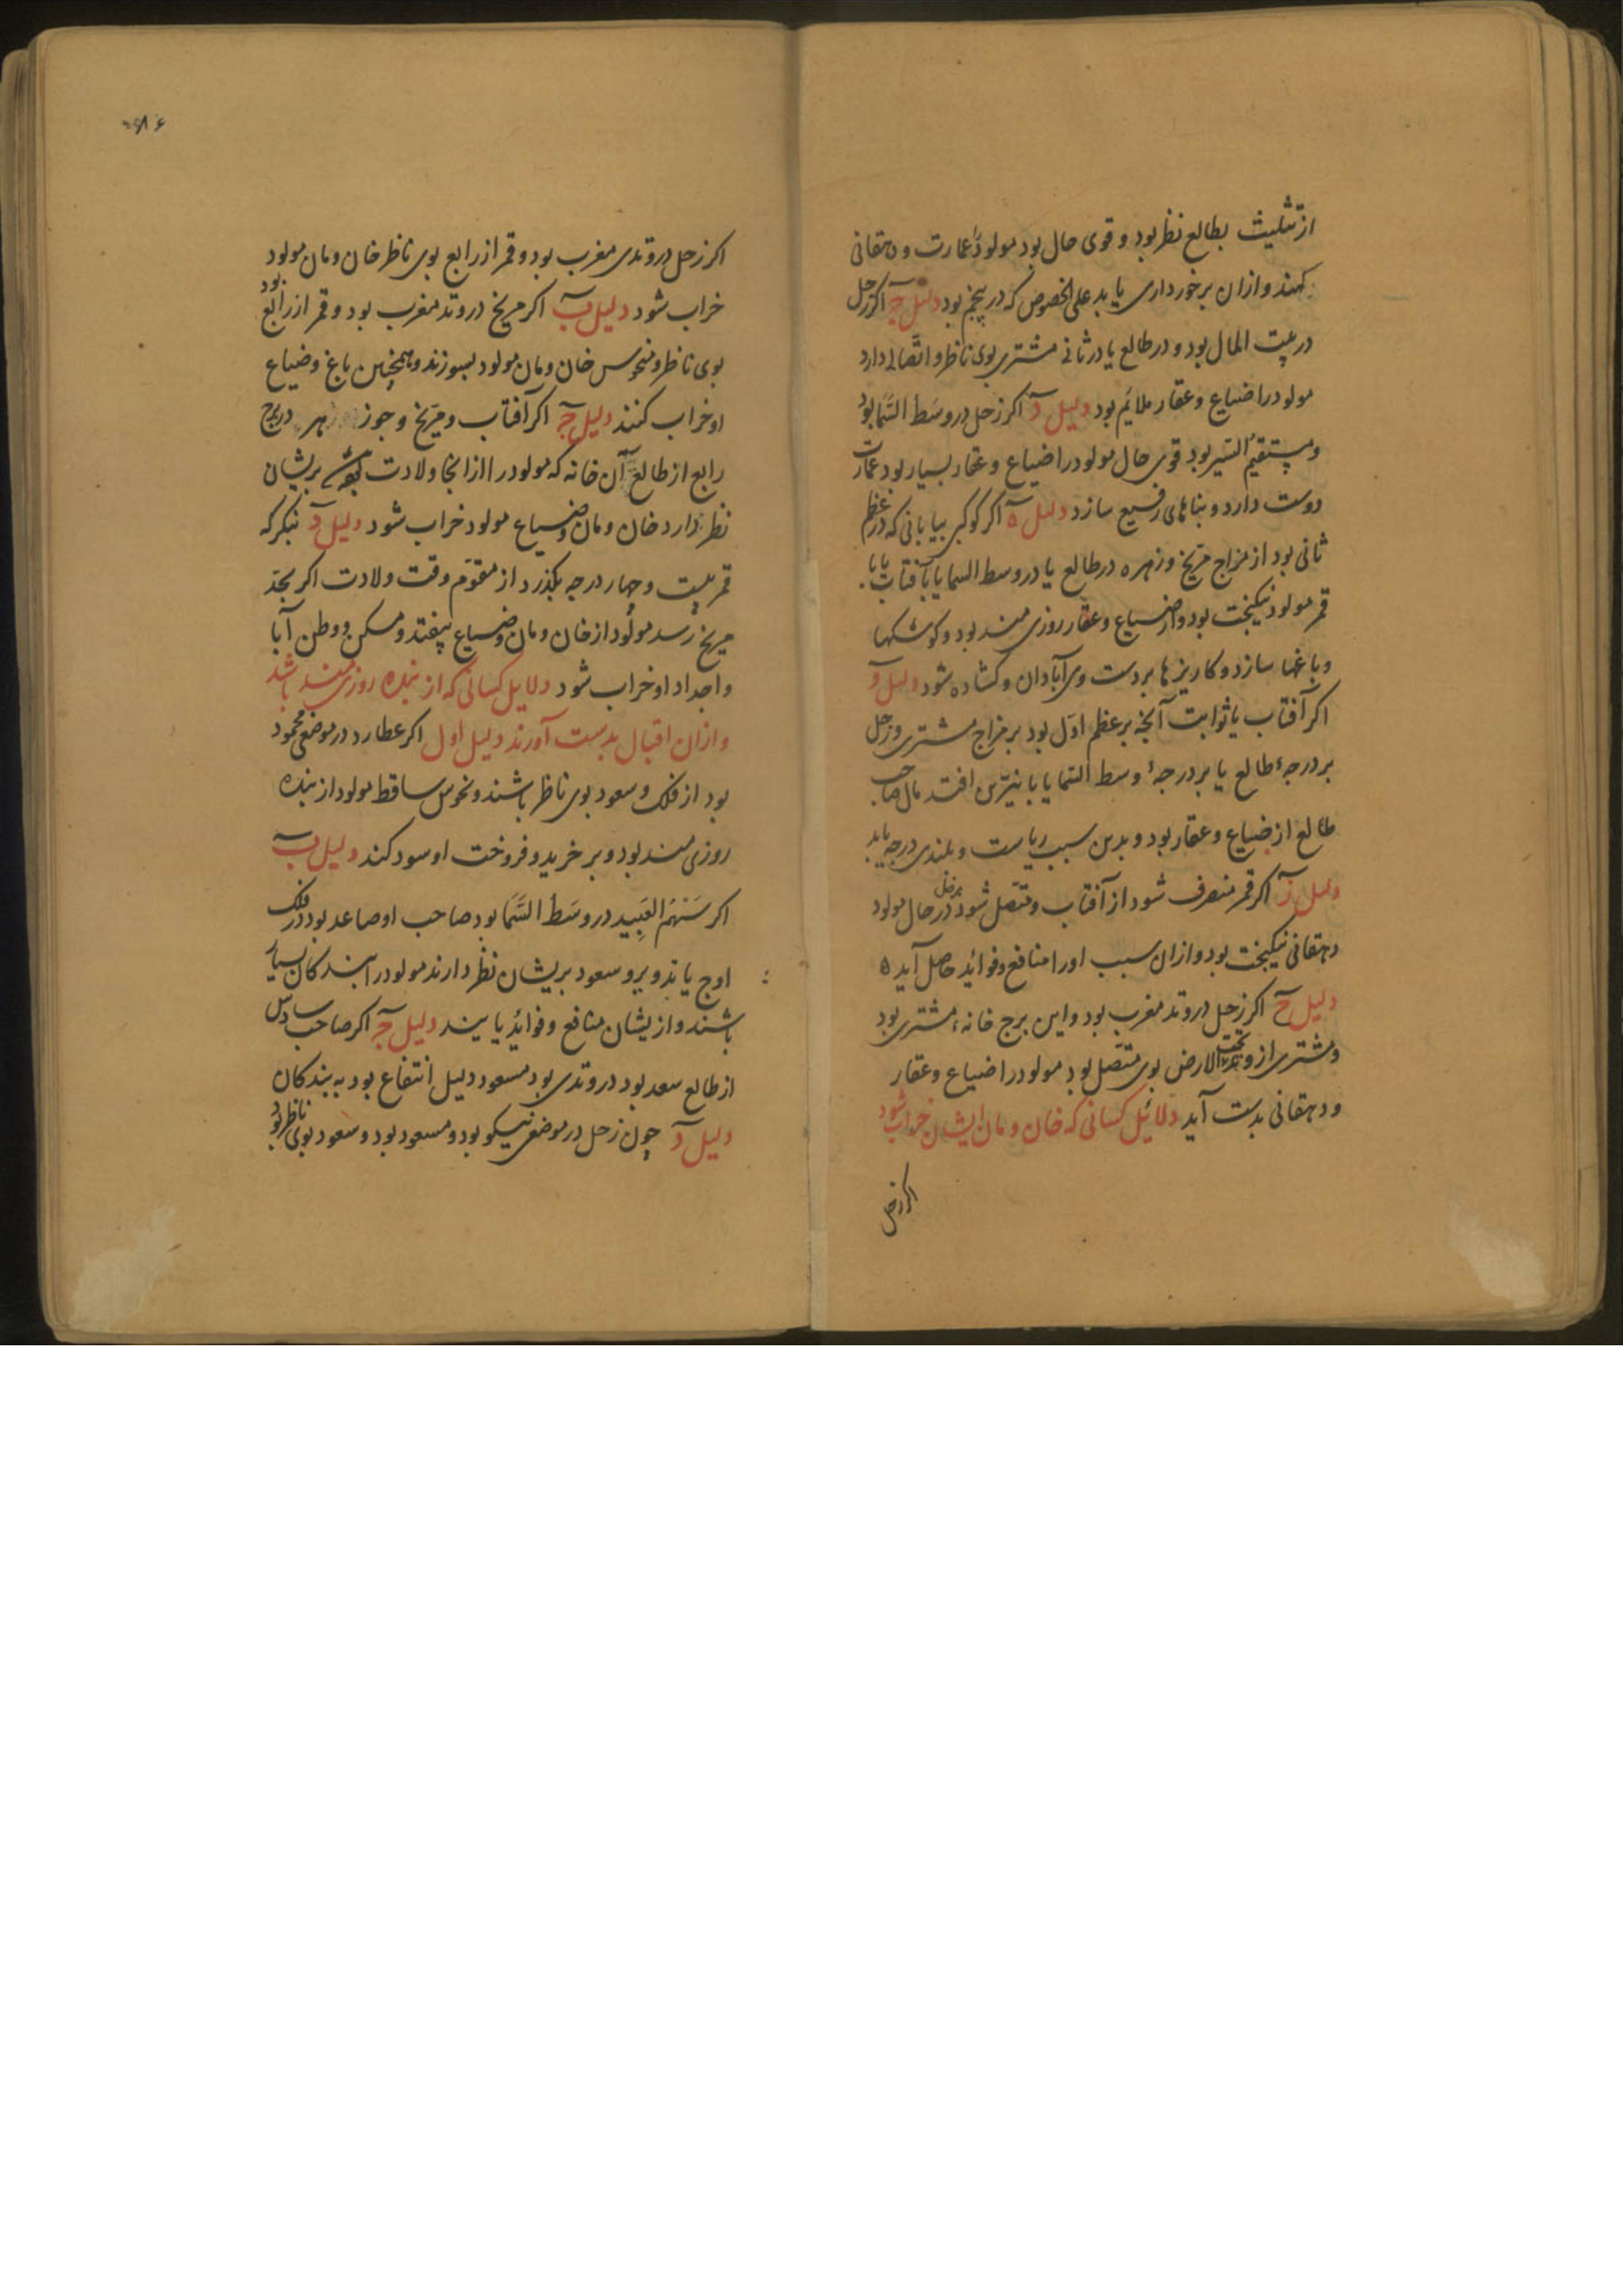 از تثلیث بطالع نظر بود و قوی حال بود مولود عمارت و دهقانی
کند و از ان برخورداری یابد علی الخصوص که در پنجم بود دلیل ج اکر زحل
در بیت المال بود و در طالع یا در ثانی مشتری بوی ناظر و اتصال دارد
مولود را ضیاع و عقار ملائم بود دلیل د اکر زحل در وسط السما بود
و مستقیم السیر بود قوی حال مولود را ضیاع و عقار بسیار بود عمارت
دوست دارد و بناهای رفیع سازد دلیل ه اکر کوکبی بیابانی که در عظم
ثانی بود از مزاج مریخ و زهره در طالع یا در وسط السما یا با آفتاب یا با
قمر مولود نیکبخت بود و از ضیاع و عقار روزی مند بود و کوشکها
و باغها سازد و کاریزها بر دست وی آبادان و کشاده شود دلیل و
اکر آفتاب یا ثوابت آنچه بر عظم اول بود بر مزاج مشتری و زحل
بر درجهٔ طالع یا بر درجهٔ وسط السما یا با نیرین افتد مال صاحب
طالع از ضیاع و عقار بود و بدین سبب ریاست و بلندی درجه یابد
دلیل ز اکر قمر منصرف شود از آفتاب و متصل شود بزحل در حال مولود
دهقانی نیکبخت بود و از ان سبب او را منافع و فوائد حاصل آید ه
دلیل ح اکر زحل در وتد مغرب بود و این برج خانهٔ مشتری بود
و مشتری از وتد تحت الارض بوی متصل بود مولود را ضیاع و عقار
و دهقانی بدست آید دلائل کسانی که خان و مان ایشان خراب شود
اکر زحل
اکر زحل در وتدی مغرب بود و قمر از رابع بوی ناظر خان و مان مولود
خراب شود دلیل ب اکر مریخ در وتد مغرب بود و قمر از رابع بود
بوی ناظر و منحوس خان و مان مولود بسوزند و همچنین باغ و ضیاع
او خراب کنند دلیل ج اکر آفتاب و مریخ و جوز در برج
رابع از طالع آن خانه که مولود را از انجا ولادت بریشان
نظر دارد خان و مان و ضیاع مولود خراب شود دلیل د بنکر که
قمر بیست و چهار درجه بکذرد از مقوم وقت ولادت اکر بحد
مریخ رسد مولود از خان و مان و ضیاع بیفتد و مسکن و وطن آبا
و اجداد او خراب شود دلایل کسانی که از بنده روزی مند باشد
و از ان اقبال بدست آورند دلیل اول اکر عطارد در موضعی محمود
بود از فلک و سعود بوی ناظر باشند و نحوس ساقط مولود از بنده
روزی مند بود و بر خرید و فروخت او سود کند دلیل ب
اکر سهم العبید در وسط السما بود صاحب او صاعد بود در فلک
اوج یا تدویر و سعود بریشان نظر دارند مولود را بندکان بسیار
باشند و از یشان منافع و فوائد یابند دلیل ج اکر صاحب سادس
از طالع سعد بود در وتدی بود مسعود دلیل انتفاع بود به بندکان
دلیل د چون زحل در موضع نیکو بود و مسعود بود و سعود بوی ناظر بود